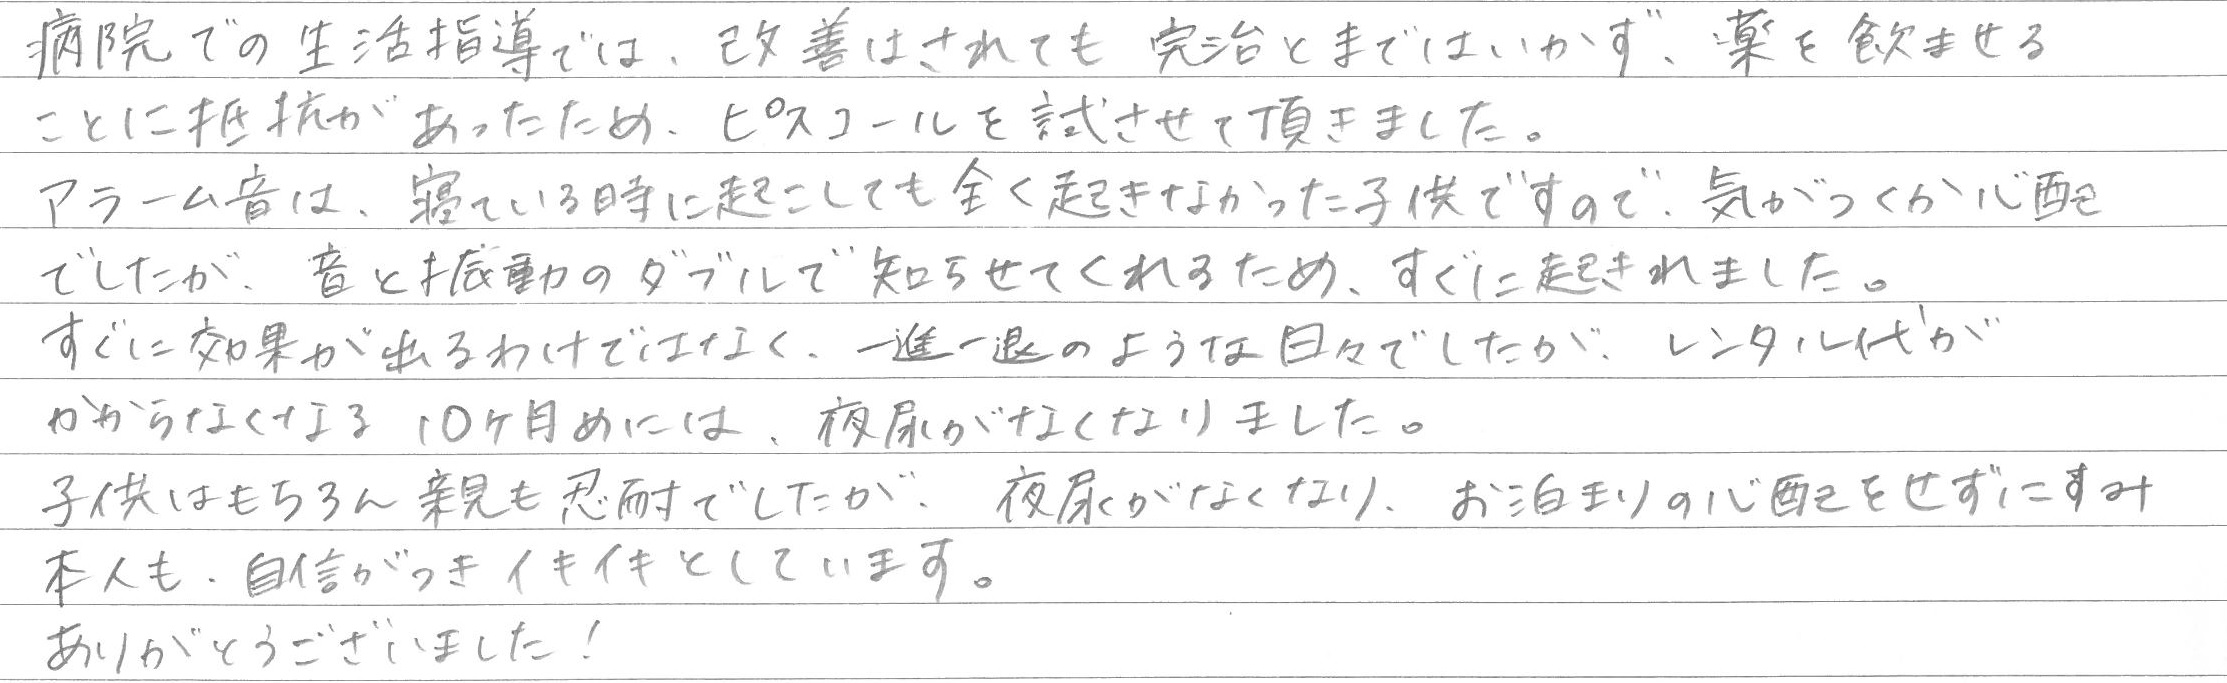 病院での生活指導では、改善はされても完治とまではいかず、薬を飲ませる
ことに抵抗があったため、ピスコールを試させて頂きました。
アラーム音は、寝ている時に起こしても全く起きなかった子供ですので、気がつくか心配
でしたが、音と振動のダブルで知らせてくれるため、すぐに起きれました。
すぐに効果が出るわけではなく、一進一退のような日々でしたが、レンタル代が
かからなくなる10ケ月めには、夜尿がなくなりました。
子供はもちろん親も忍耐でしたが、夜尿がなくなり、お泊まりの心配をせずにすみ
本人も、自信がつきイキイキとしています。
ありがとうございました!